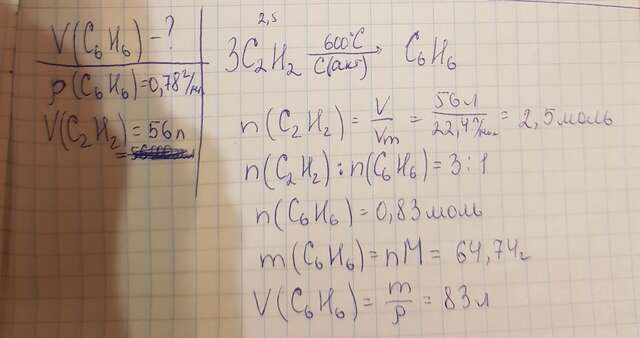 V(C₆H₆) - ?
ρ(C₆H₆)=0,78г/мл
V(C₂H₂)=56л
2,5
3C₂H₂ 600°C C(акт) → C₆H₆
n(C₂H₂) = V/Vm = 56л/22,4л/моль = 2,5 моль
n(C₂H₂) : n(C₆H₆) = 3 : 1
n(C₆H₆) = 0,83 моль
m(C₆H₆) = nM = 64,74г
V(C₆H₆) = m/ρ = 83л